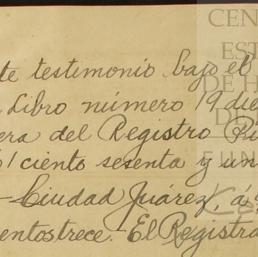 CEN
EST
DE H
DE
FUN
te testimonio bajo el
Libro número 19 die
era del Registro Pú
1 ciento sesenta y un
- Ciudad Juárez, á
entostrece.- El Registra